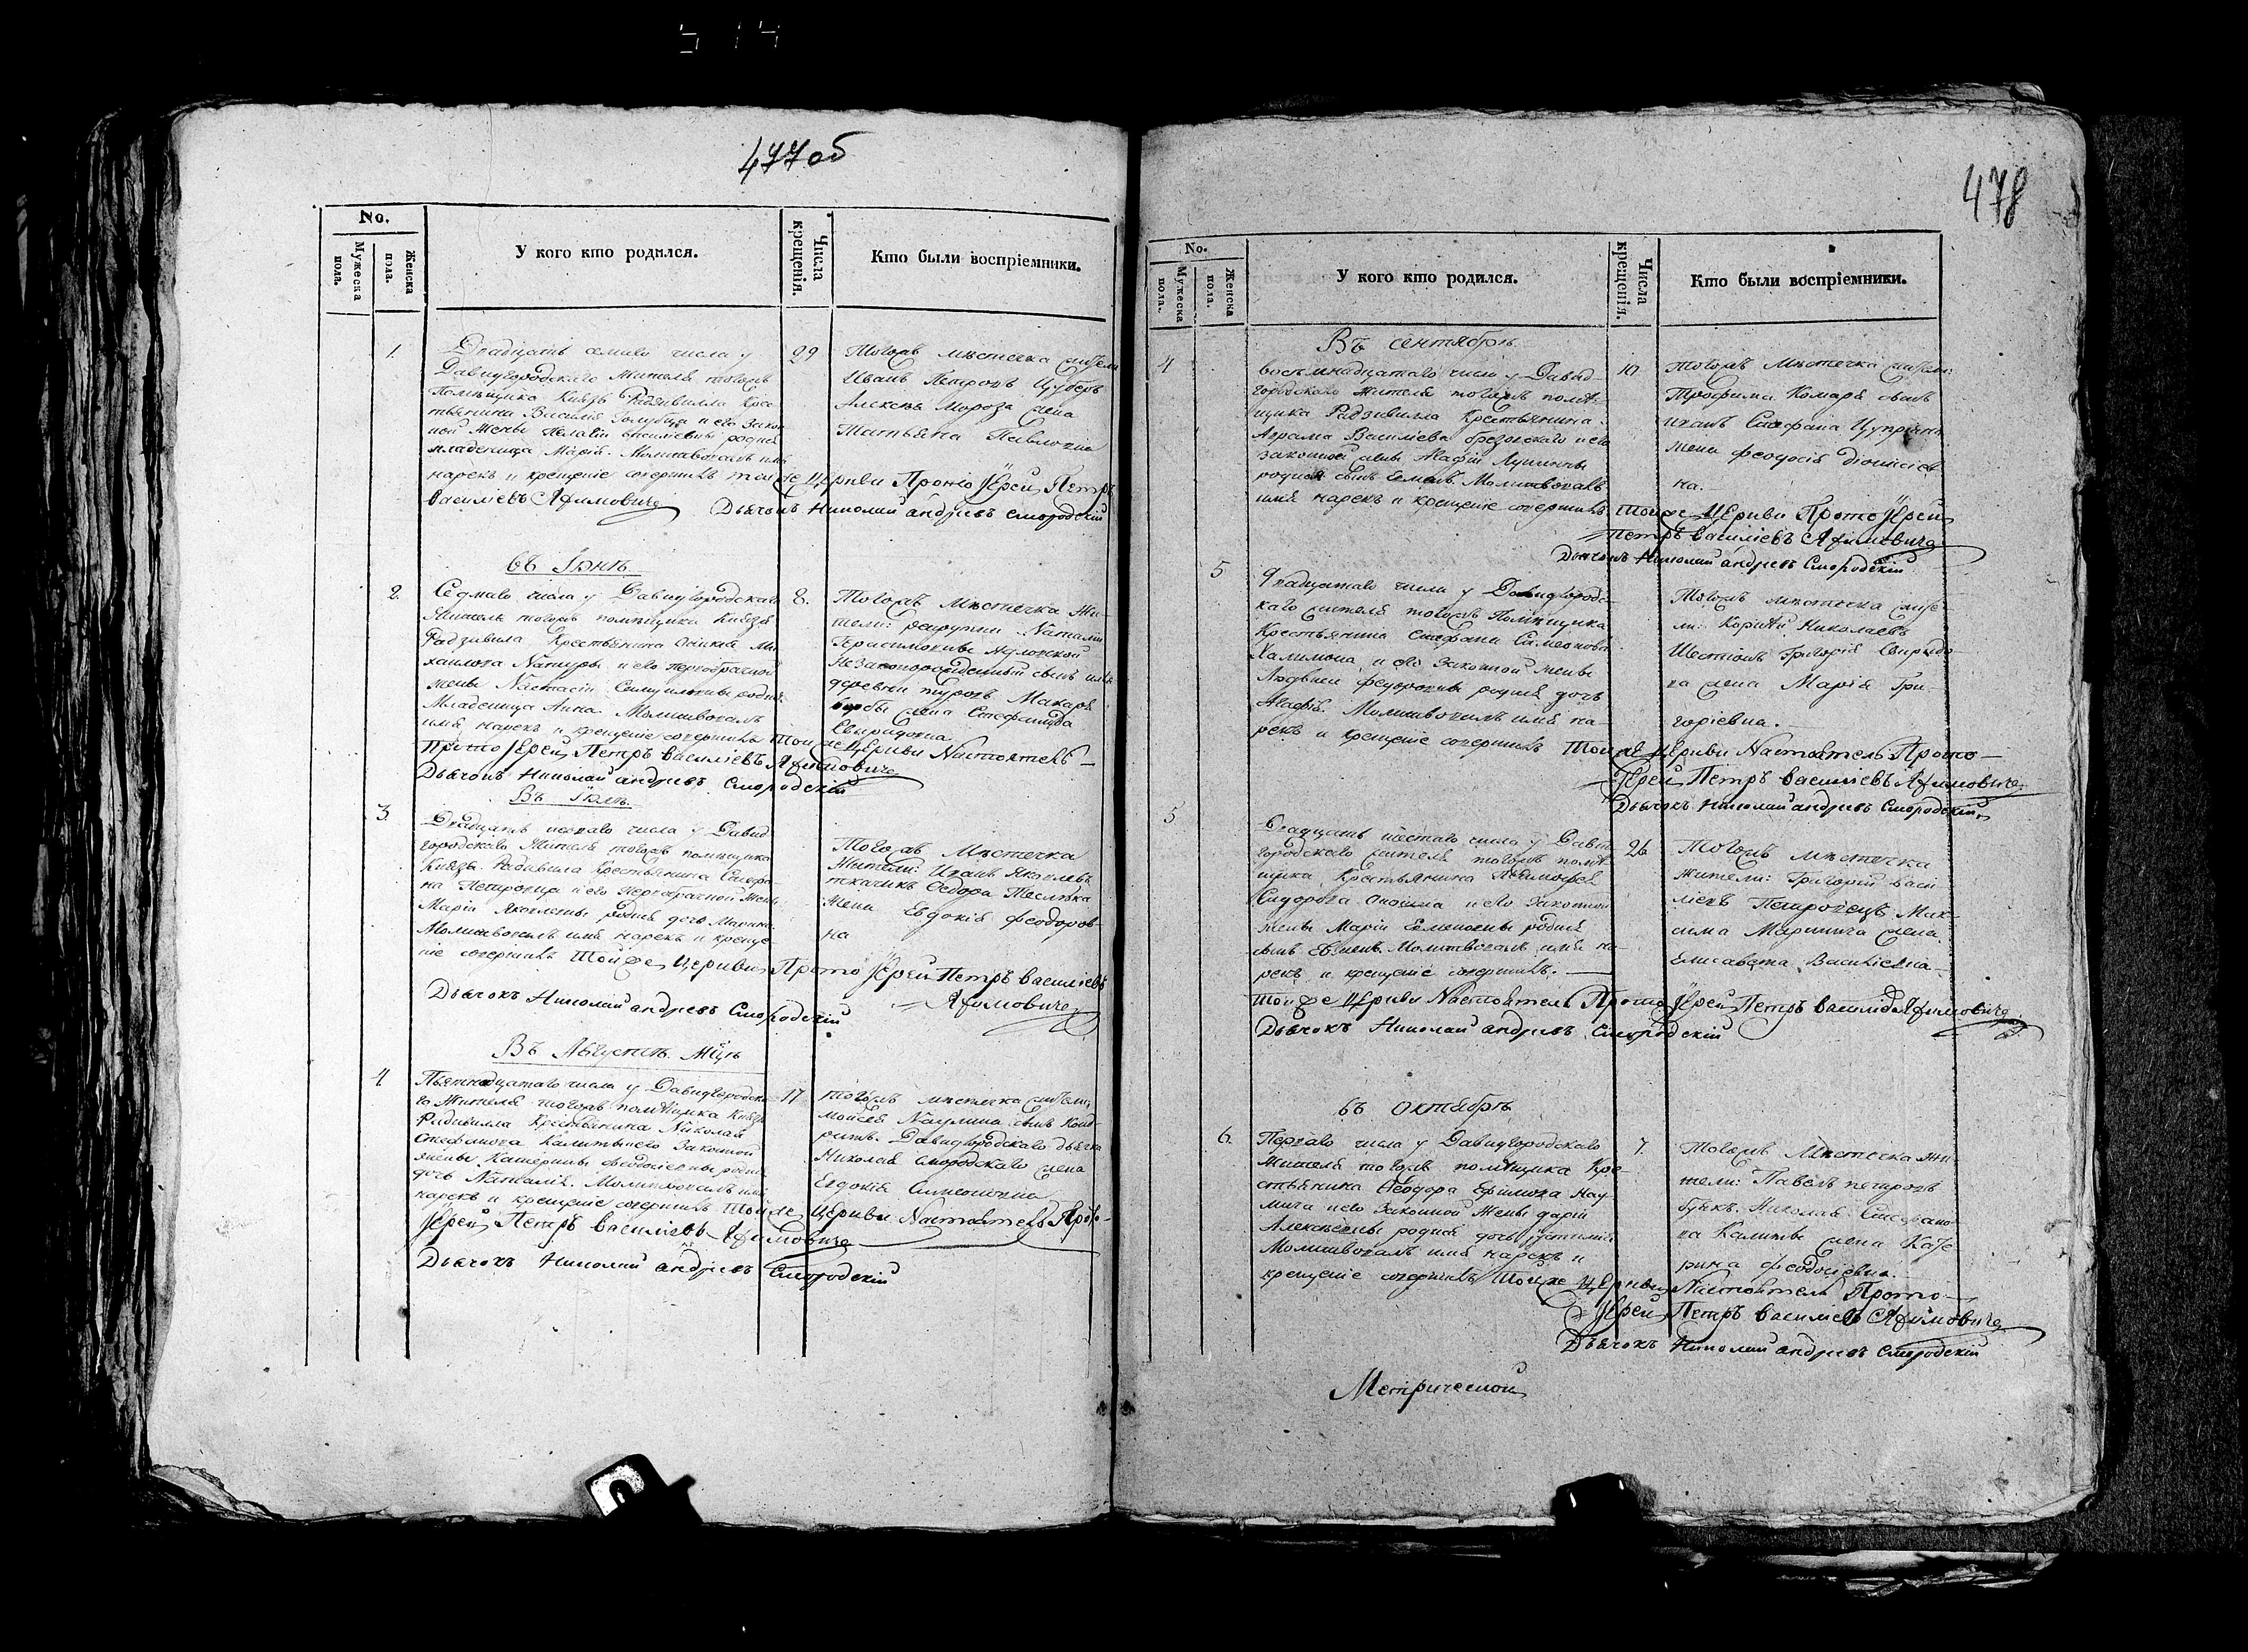 477 об
No.
Мужеска пола.
Женска пола.
У кого кто родился.
Числа крещенія.
Кто были воспріемники.
1.
Двадцать семаго числа у
Давидгородскаго жителя тогожъ
Помѣщика Князя Радзивилла Крес
тьянина Василія Голубца и его закон
ной жены Пелагіи Василіевны родися
младеница Марія. Молитвовалъ имя
нарекъ и крещеніе совершилъ тойже Церкви Протоіерей Петръ
Василіевъ Афимовичъ
Дьячокъ Николай андріевъ Смородскій
29
Тогожъ мѣстечка жители
Иванъ Петровъ
Алексѣя Мороза жена
Татьяна Павловна
въ Іюнѣ
2.
Седмаго числа у Давидгородскаго
жителя тогожъ помѣщика Князя
Радзивила Крестьянина
хайлова и его первобрачной
жены Настасіи родися
Младеница Анна. Молитвовалъ
имя нарекъ и крещеніе совершилъ Тойже Церкви Настоятель
Протоіерей Петръ Василіевъ Афимовичъ
Дьячокъ Николай андріевъ Смородскій
8.
Тогожъ мѣстечка жи-
тели: рекрутки Наталіи
Герасимовны
Незаконорожденный сынъ
деревни туровъ Макара
жена Стефанида
Свиридовна
Въ Іюлѣ.
3.
Двадцать перваго числа у Давид
городскаго жителя тогожъ помѣщика
Князя Радзивила Крестьянина Стефа-
на Петровца и его первобрачной жены
Маріи Яковлевны родися дочь Марина
Молитвовалъ имя нарекъ и креще
ніе совершилъ Тойже Церкви Протоіерей Петръ Василіевъ
Афимовичъ
Дьячокъ Николай андріевъ Смородскій
Тогожъ мѣстечка
жители: Иванъ Яковлевъ
ткачикъ Ѳедора Теслюка
жена Евдокія феодоров-
на
Въ Августѣ мцѣ
4
Пьятнадцатаго числа у Давидгородска
го жителя тогожъ помѣщика Князя
Радзивилла Крестьянина Николая
Стефанова Калиты и его законной
жены Катерины феодосіевны родися
дочь Наталія. Молитвовалъ имя
нарекъ и крещеніе совершилъ Тойже Церкви Настоятель Прото-
Іерей Петръ Василіевъ Афимовичъ
Дьячокъ Николай андріевъ Смородскій
17
тогожъ мѣстечка жители
моисея Наумича сынъ Конд
ратъ. Давидгородскаго дьячка
Николая Смородскаго жена
Евдокія Симеоновна
478
No.
Мужеска пола.
Женска пола.
У кого кто родился.
Числа крещенія.
Кто были воспріемники.
Въ сентябрѣ
4
восемнадцатаго числа у Давид-
городскаго жителя тогожъ помѣ-
щика Радзивилла Крестьянина
Аврама Василіева и его
законной жены Агафіи
родися сынъ Семенъ. Молитвовалъ
имя нарекъ и крещеніе совершилъ Тойже Церкви Протоіерей
Петръ Василіевъ Афимовичъ
Дьячокъ Николай андріевъ Смородскій
тогожъ мѣстечка жители:
Трофима Комара сынъ
иванъ Стефана
жена феодосія діонисіев
на.
5
Двадцатаго числа у Давидгородс-
каго жителя тогожъ Помѣщика
Крестьянина Стефана Симеонова
Халимона и его законной жены
феодоровны родися дочь
Агафія. Молитвовалъ имя на-
рекъ и крещеніе совершилъ Тойже Церкви Настоятель Прото-
Іерей Петръ Василіевъ Афимовичъ
Дьячокъ Николай андріевъ Смородскій
Тогожъ мѣстечка жите-
ли: Корнѣй Николаевъ
Шестакъ Григорія Свиридо-
ва жена Марія Гри-
горіевна.
5
Двадцать шестаго числа у Давид
городскаго жителя тогожъ помѣ
щика Крестьянина Тимофея
Сидорова и его законной
жены Маріи Семеновны родися
сынъ Молитвовалъ имя на-
рекъ и крещеніе совершилъ.
Тойже Церкви Настоятель Протоіерей Петръ Василіевъ Афимовичъ
Дьячокъ Николай андріевъ Смородскій
26
Тогожъ мѣстечка
жители: Григорій Васи
ліевъ Петровецъ Мак-
сима Маринича жена
Елисавета Василіевна
въ октябрѣ
6.
Перваго числа у Давидгородскаго
жителя тогожъ помѣщика Кре-
стьянина Ѳеодора Ефимова Нау-
мича и его законной жены дарій
Алексѣевны родися дочь Іустинія
Молитвовалъ имя нарекъ и
крещеніе совершилъ Тойже Церкви Настоятель Прото-
Іерей Петръ Василіевъ Афимовичъ
Дьячокъ Николай андріевъ Смородскій
7.
Тогожъ мѣстечка жи-
тели: Павелъ петровъ
Николая Стефано-
ва Калиты жена Кате
рина феодосіевна.
Метрической